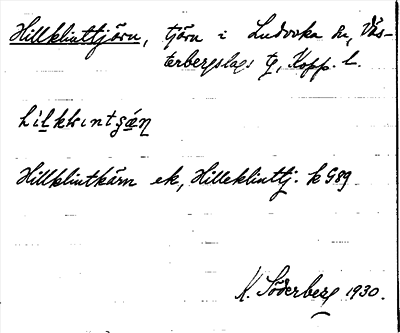 Hillklinttjörn, tjörn i Ludvika sn, Väs-
terbergslags tg, Kopp. l.
Hillklintkärn ek, Hilleklinttj. k G89
K. Söderberg 1930.